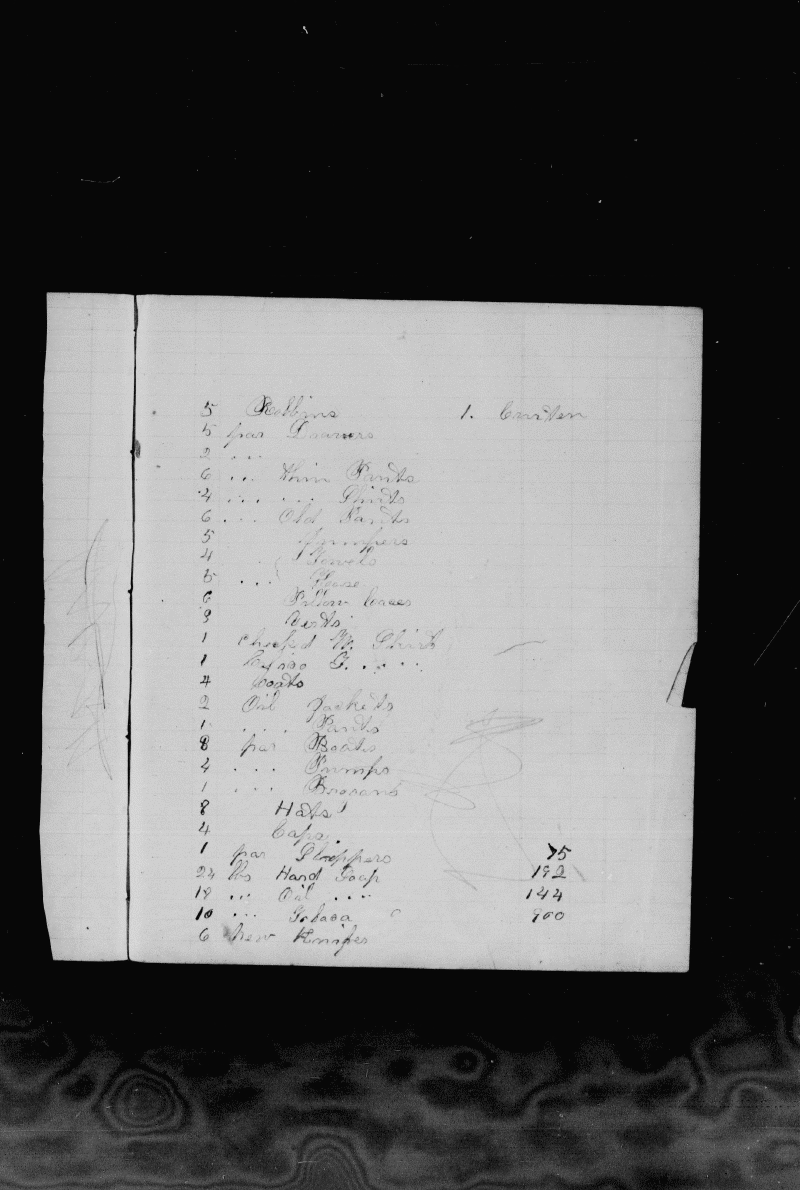 5 Robbins 1. Curten
5 par Drawers
2 ...
6 ... thin Pants
4 ... ... Shirts
6 ... Old Pants
5 Jumpers
4 Towels
5 ... Hose
6 Pillow Cases
3 Vests
1 checked W. Shirt
1 G. . . . .
4 Coats
2 Oil Jackets
1 . . . . Pants
8 par Boots
4 . . . Pumps
1 . . . Brogans
8 Hats
4 Caps
1 par Slippers 75
24 lbs Hard Soap 192
18 ... Oil .... 144
10 ... Tobaca 900
6 new Knifes